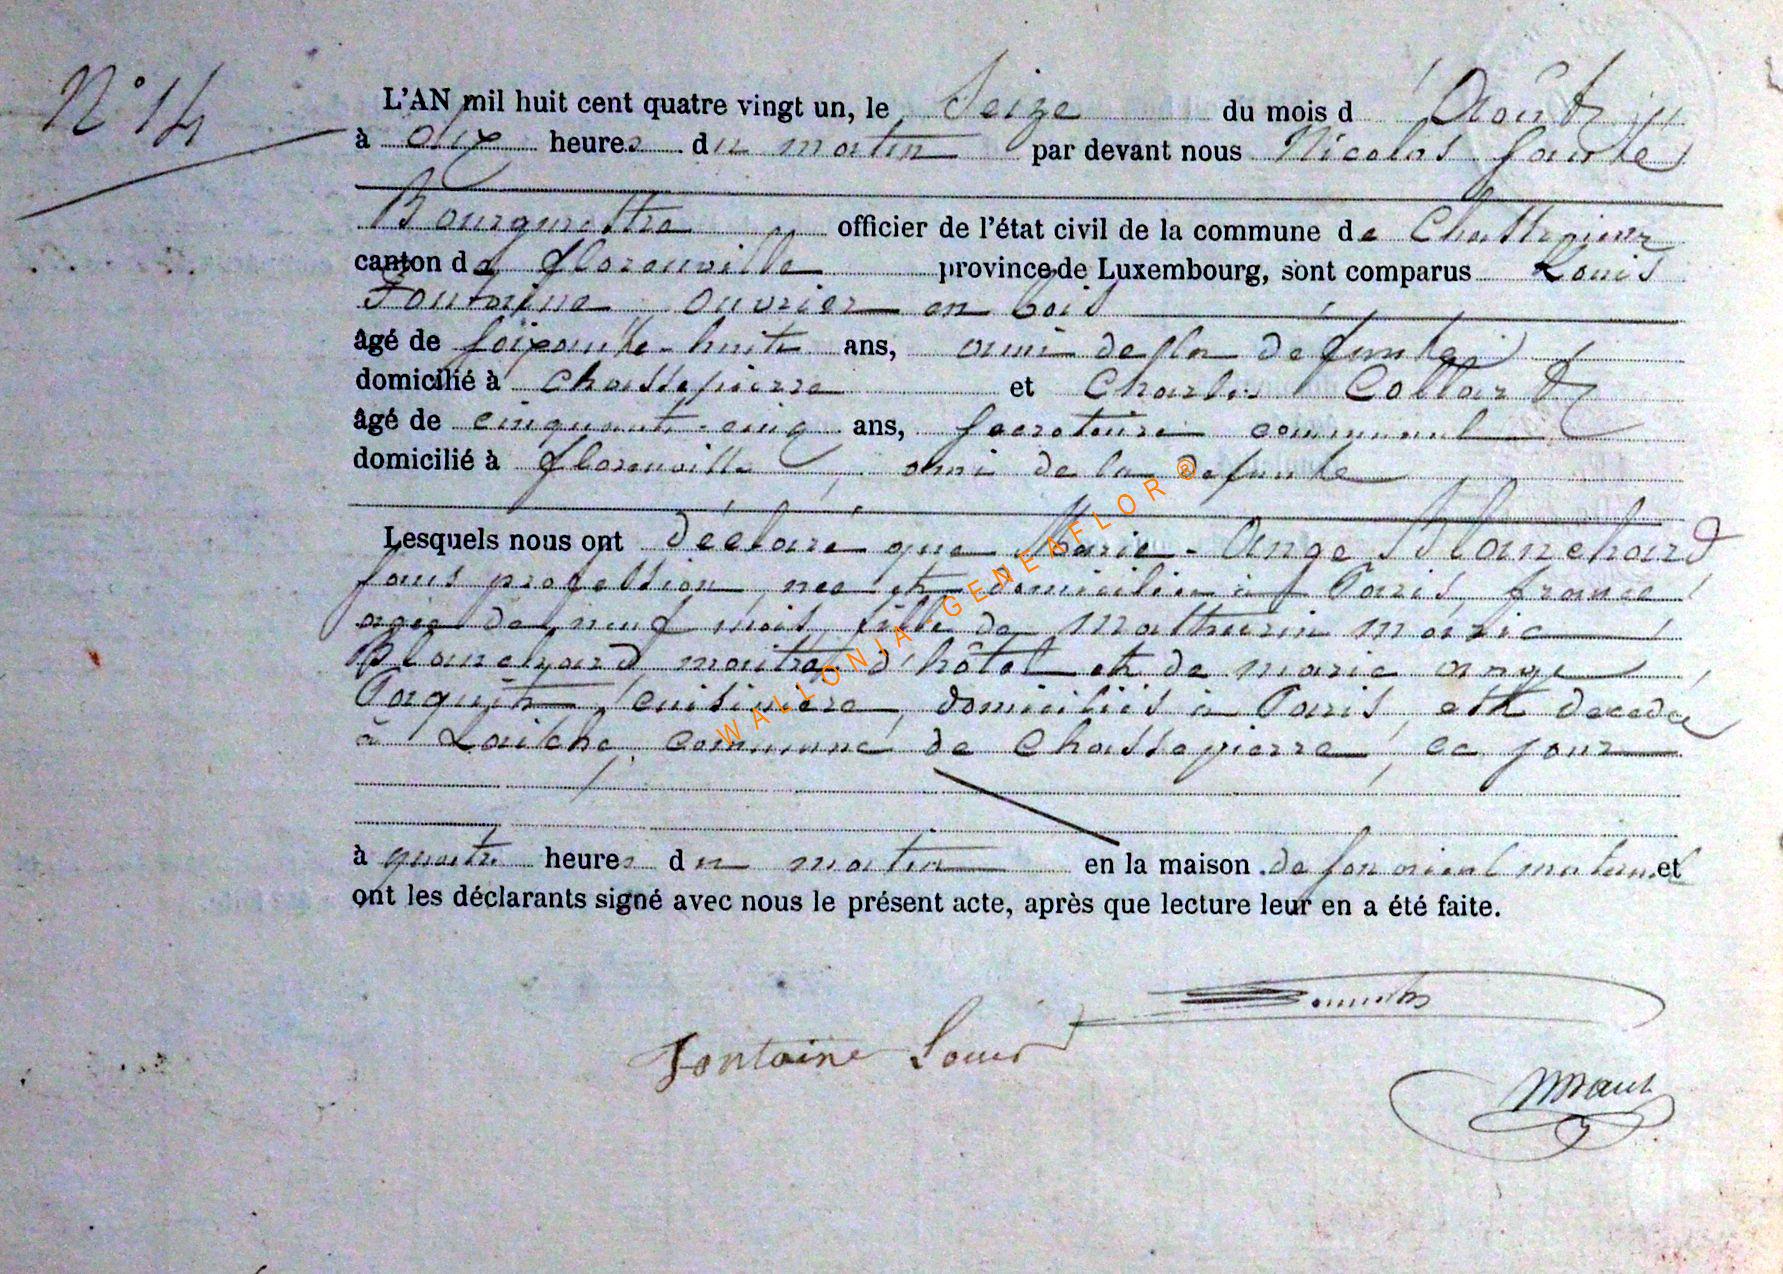 N° 14
L'AN mil huit cent quatre vingt un, le Seize du mois d'Août
à dix heures du matin par devant nous Nicolas
Bourgmestre officier de l'état civil de la commune de Chassepierre
canton de florenville province de Luxembourg, sont comparus Louis
Fontaine ouvrier en bois
âgé de soixante-huit ans, ami de la défunte
domicilié à Chassepierre et Charles Collard
âgé de cinquante-cinq ans, secrétaire communal
domicilié à florenville, ami de la défunte
Lesquels nous ont déclaré que Marie-Ange Blanchard
sans profession, née et domiciliée à Paris, france
agée de neuf mois, fille de Mathurin Marie
Blanchard maitre d'hôtel et de marie ange
Paquet, cuisinière, domiciliés à Paris, est décédée
à Laiche, commune de Chassepierre, ce jour
à quatre heures du matin en la maison de son aieul maternel et
ont les déclarants signé avec nous le présent acte, après que lecture leur en a été faite.
Fontaine Louis
WALLONIA-GENEAFLOR®